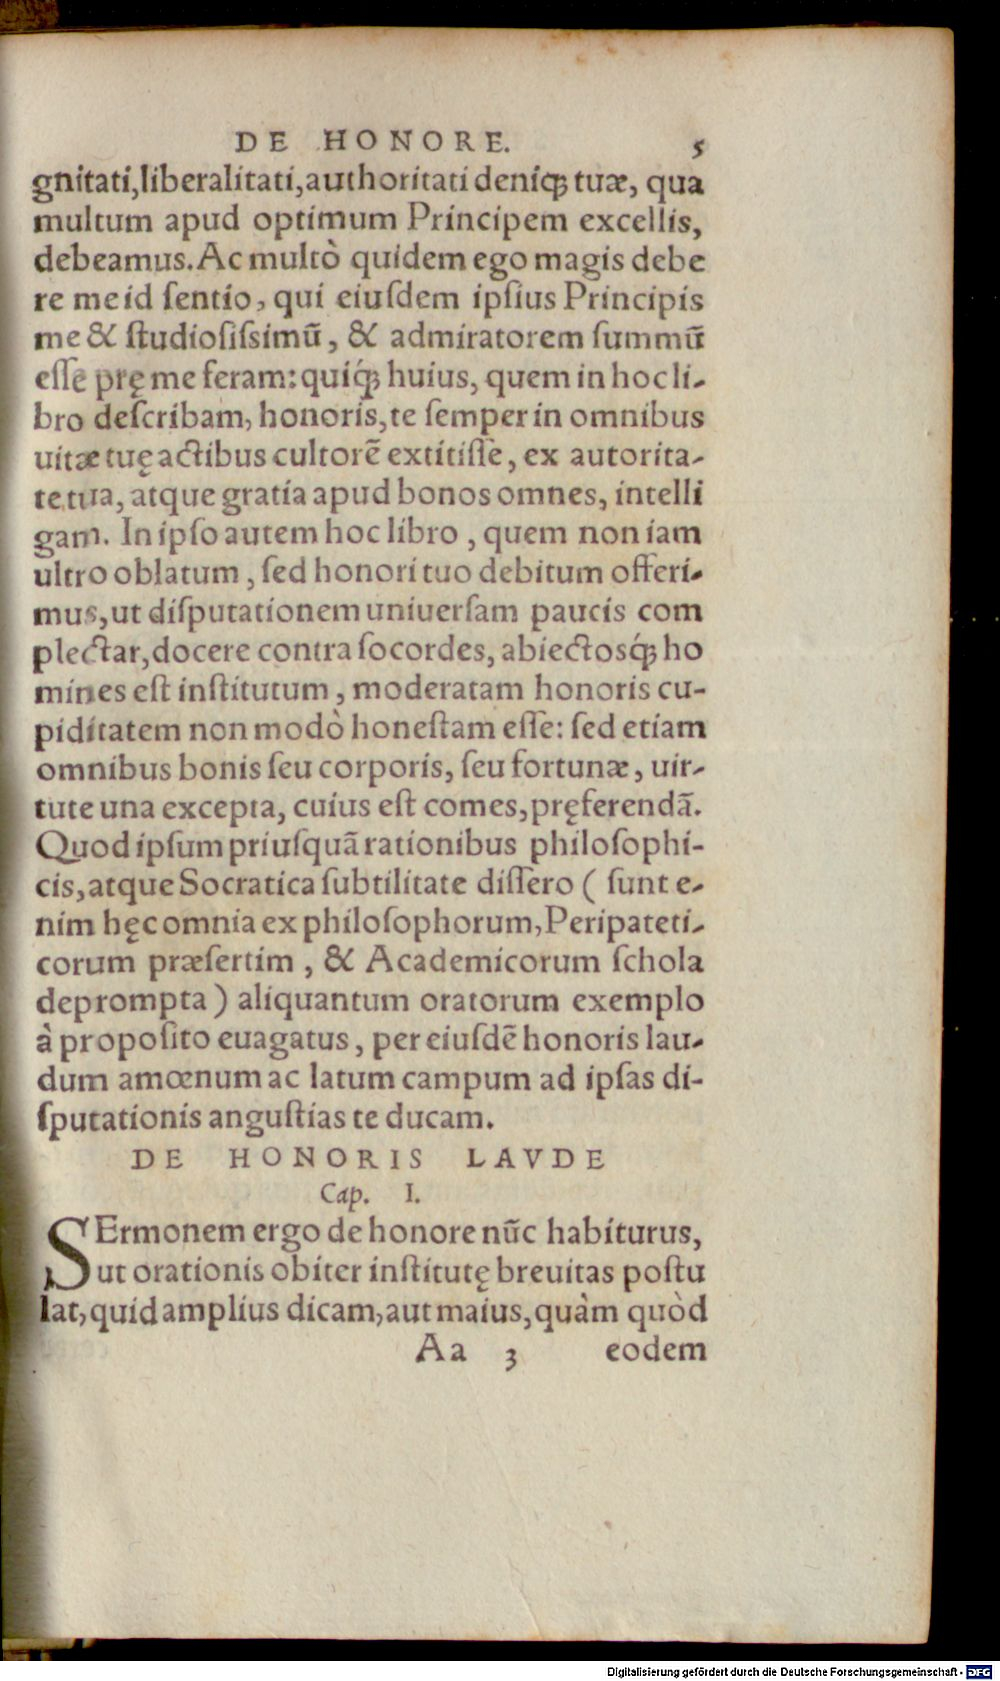 DE HONORE. 5
gnitati,liberalitati,authoritati deniqꝫ tuæ, qua
multum apud optimum Principem excellis,
debeamus.Ac multò quidem ego magis debe
re me id ſentio, qui eiuſdem ipſius Principis
me & ſtudioſiſsimũ, & admiratorem ſummũ
eſſe prę me feram: quíqꝫ huius, quem in hoc li-
bro deſcribam, honoris, te ſemper in omnibus
uitæ tuę actibus cultorẽ extitiſſe, ex autorita-
te tua, atque gratia apud bonos omnes, intelli
gam. In ipſo autem hoc libro, quem non iam
ultro oblatum, ſed honori tuo debitum offeri-
mus, ut diſputationem uniuerſam paucis com
plectar, docere contra ſocordes, abiectosq́ꝫ ho
mines eſt inſtitutum, moderatam honoris cu-
piditatem non modò honeſtam eſſe: ſed etiam
omnibus bonis ſeu corporis, ſeu fortunæ, uir-
tute una excepta, cuius eſt comes, pręferendã.
Quod ipſum priuſquã rationibus philoſophi-
cis, atque Socratica ſubtilitate diſſero ( ſunt e-
nim hęc omnia ex philoſophorum, Peripateti-
corum præſertim, & Academicorum ſchola
deprompta ) aliquantum oratorum exemplo
à propoſito euagatus, per eiuſdẽ honoris lau-
dum amœnum ac latum campum ad ipſas di-
ſputationis anguſtias te ducam.
DE HONORIS LAVDE
Cap. I.
SErmonem ergo de honore nũc habiturus,
ut orationis obiter inſtitutę breuitas poſtu
lat, quid amplius dicam, aut maius, quàm quòd
Aa 3 eodem
Digitalisierung gefördert durch die Deutsche Forschungsgemeinschaft - DFG